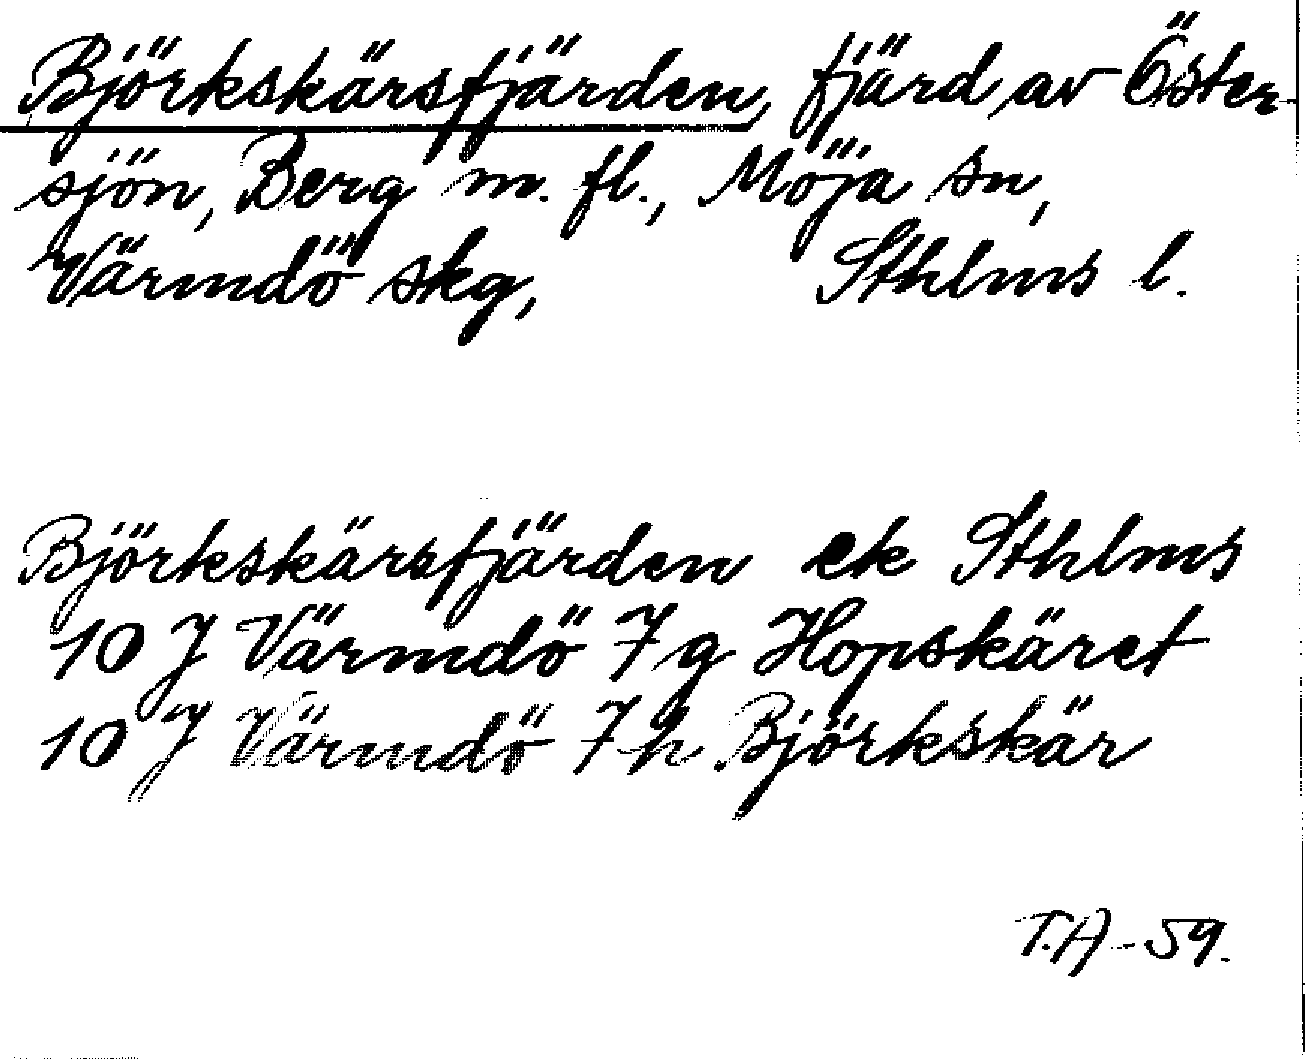 Björkskärsfjärden, fjärd av Öster-
sjön, Berg m. fl., Möja sn,
Värmdö skg, Sthlms l.
Björkskärsfjärden ek Sthlms
10 J Värmdö 7 g Hopskäret
10 J Värmdö 7 h Björkskär
T.A -59.